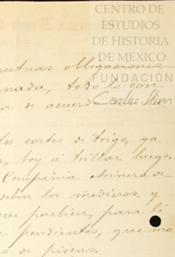 CENTRO DE
ESTUDIOS
DE HISTORIA
DE MEXICO
FUNDACIÓN
Carlos Slim
mutuas obligaciones
nada, todo lo con
a de acuerdo
los cortes de trigo, ya
, voy á trillar luego
Compañia Minera de
deben los medieros, y
que
pendientes, que no
s de piscas.